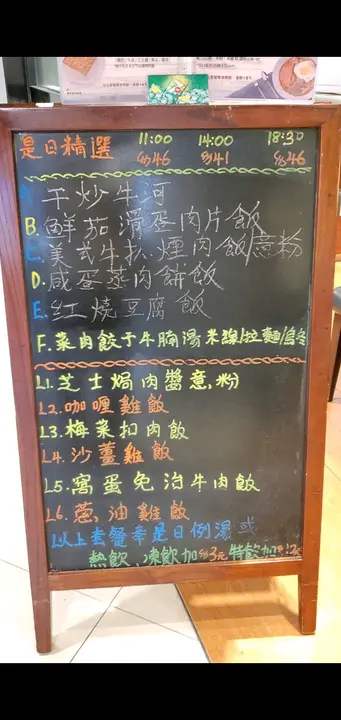 是日精選 11:00 14:00 18:30
$46 $41 $46
干炒牛河
B.鮮茄滑蛋肉片飯
C.美式牛扒煙肉飯/意粉
D.咸蛋蒸肉餅飯
E.紅燒豆腐飯
F.菜肉餃子牛腩湯米線/拉麵/烏冬
L1.芝士焗肉醬意粉
L2.咖喱雞飯
L3.梅菜扣肉飯
L4.沙薑雞飯
L5.窩蛋免治牛肉飯
L6.蔥油雞飯
以上套餐奉是日例湯或
熱飲、凍飲加$3元特飲加